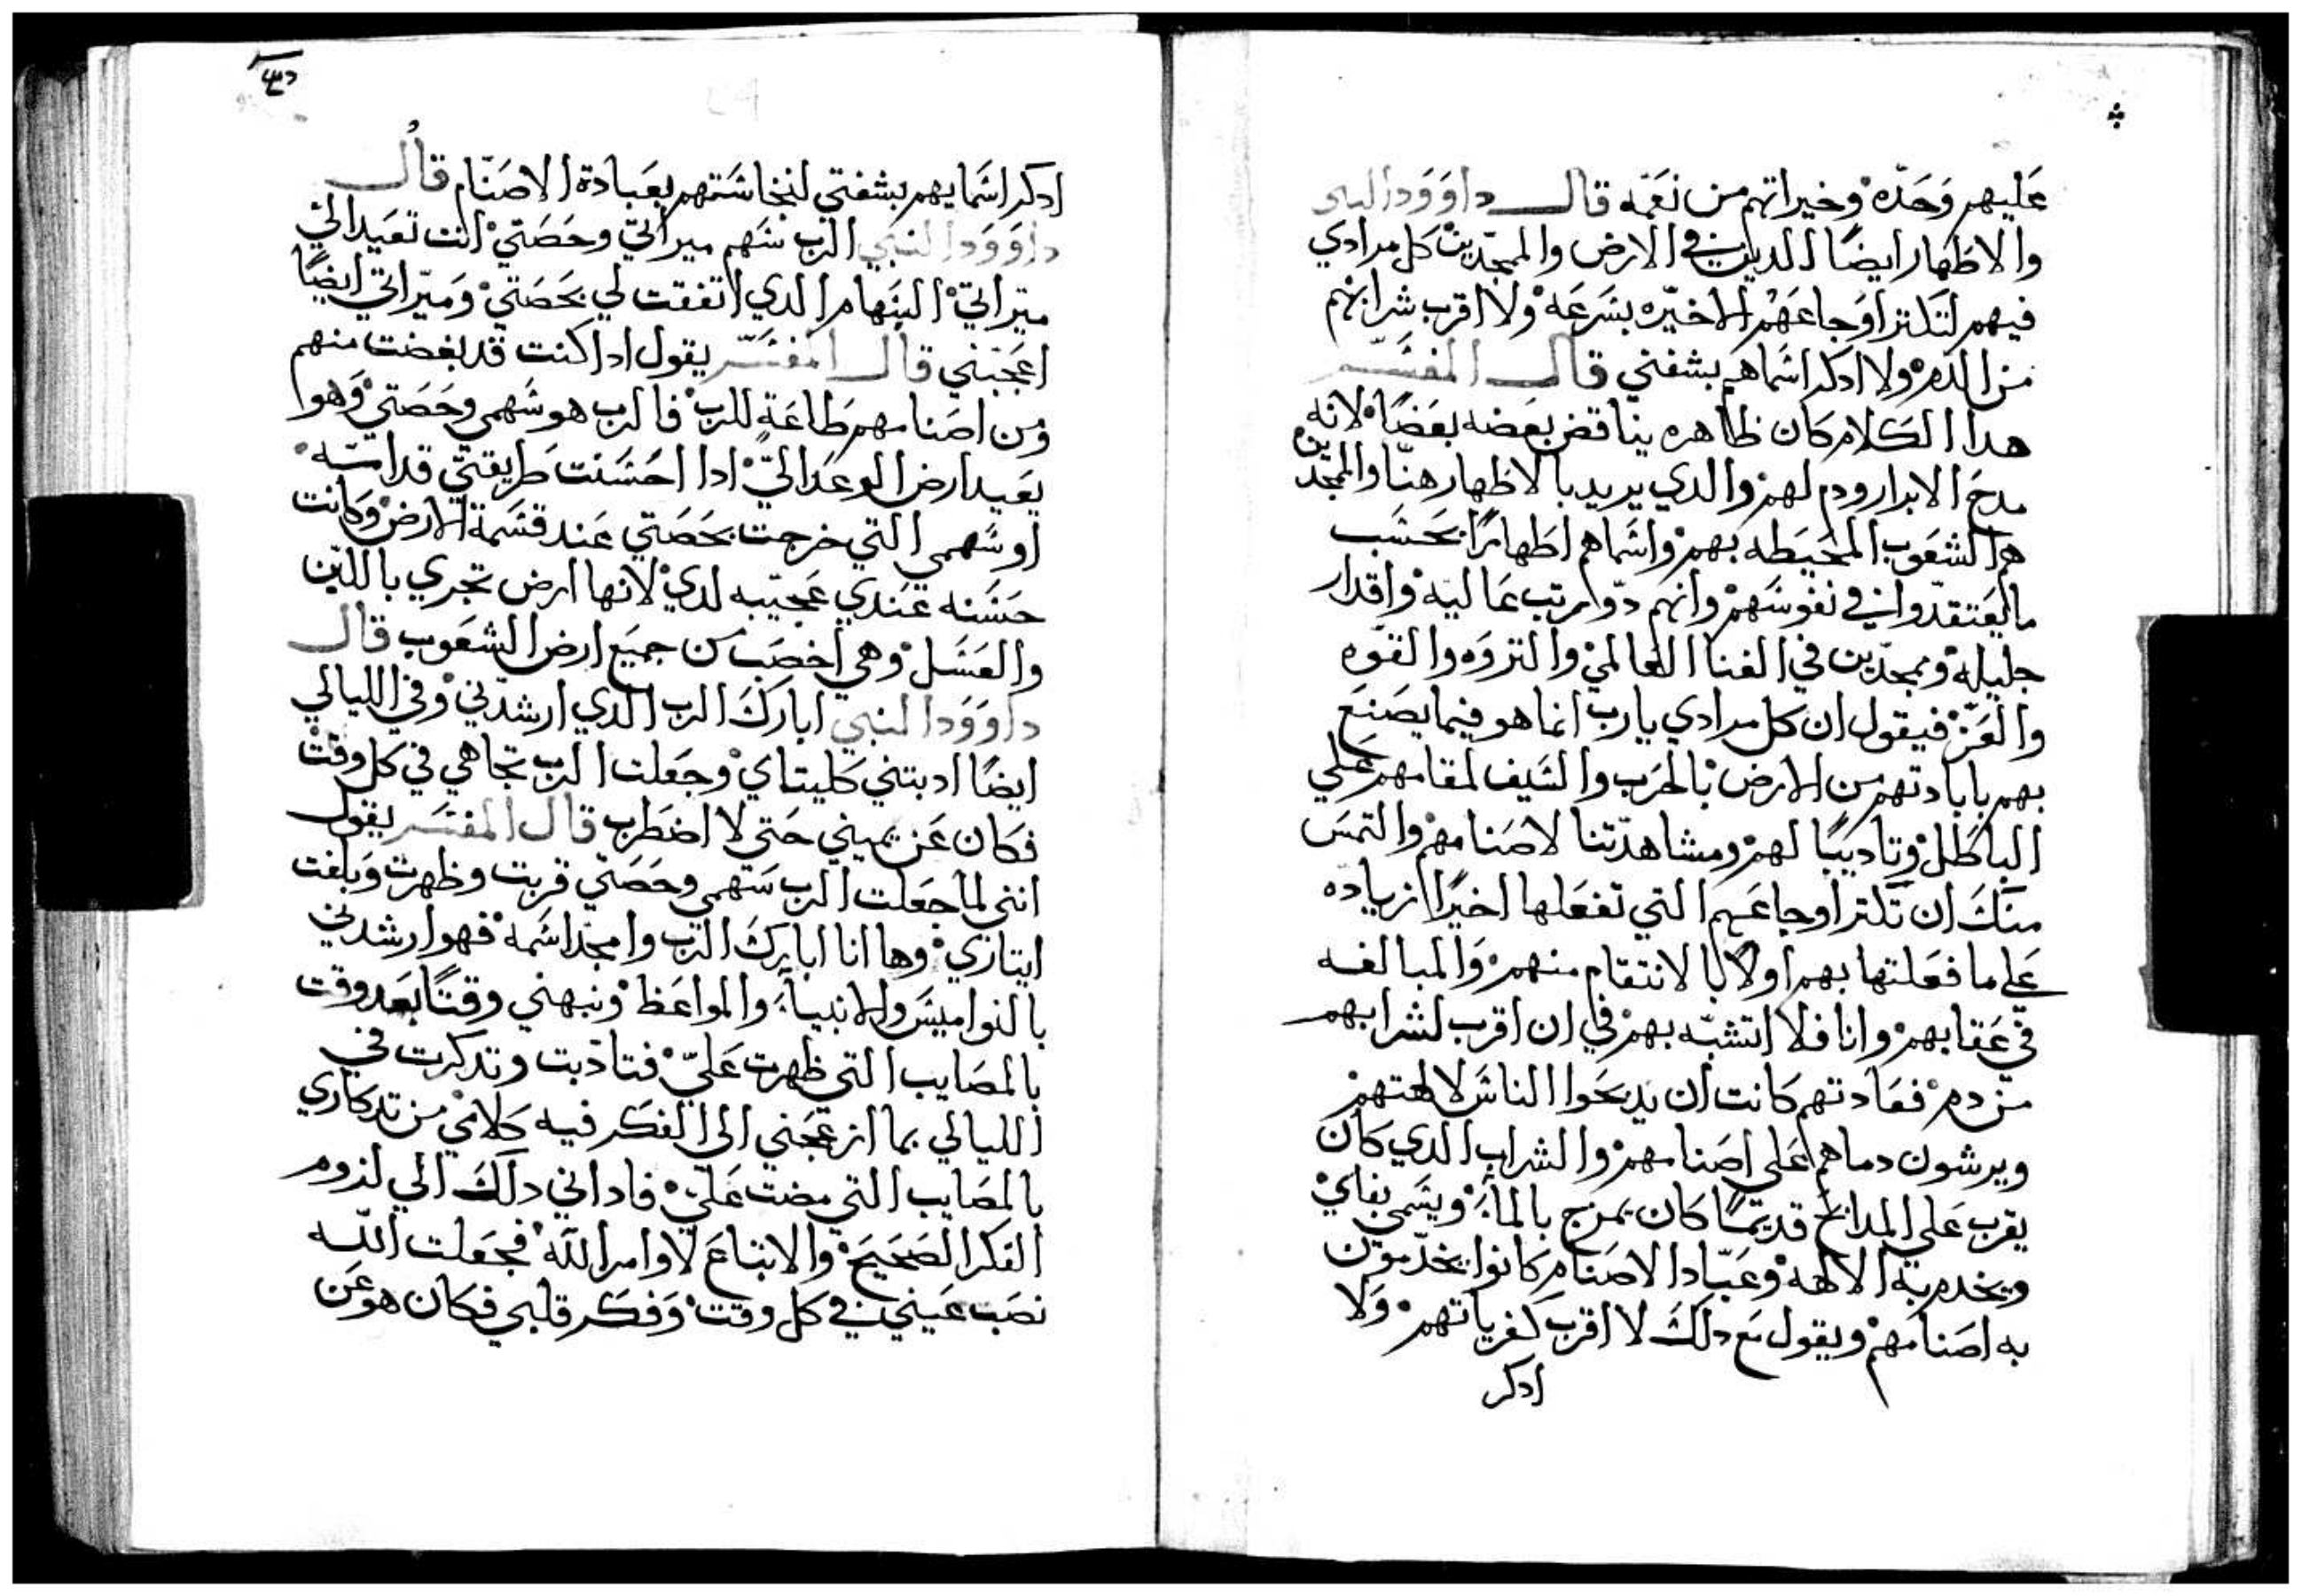 عليهم وحده وخيراتهم من نعمه قال داوود النبي
والاظهار ايضًا الدين في الارض والممجدين كل مرادي
فيهم لتكتر اوجاعهم الاخيره بسرعه ولا اقرب شرابهم
من الدم ولا ادكر اسماهم بشفتي قال المفسر
هدا الكلام كان ظاهره يناقض بعضه بعضًا لانه
مدح الابرار ودم لهم والدي يريد بالاظهار هنا والممجدين
هم الشعوب المحيطه بهم واسماهم اظهارًا بحسب
ما يعتقدوا في نفوسهم وانهم دوا رتب عاليه واقدار
جليله وممجدين في الغنا العالمي والتروه والقوه
والعز فيقول ان كل مرادي يارب انما هو فيما يصنع
بهم بابادتهم من الارض بالحرب والسيف لمقامهم علي
الباطل وتاديبًا لهم ومشاهدتنا لاصنامهم والتمس
منك ان تكتر اوجاعهم التي تفعلها اخيرًا زياده
علي ما فعلتها بهم اولًا بالانتقام منهم والمبالغه
في عقابهم وانا فلا اتشبه بهم في ان اقرب لشرابهم
من دم فعادتهم كانت ان يدبحوا الناس لالهتهم
ويرشون دماهم علي اصنامهم والشراب الدي كان
يقرب علي المدابح قديمًا كان يمزج بالماء ويسمي بقاي
ويخدم به الالهه وعباد الاصنام كانوا يخدمون
به اصنامهم ويقول مع دلك لا اقرب كفرياتهم ولا
ادكر
ادكر اسمايهم بشفتي لنجاستهم بعبادة الاصنام قال
داوود النبي الرب سهم ميراتي وحصتي انت تعيد الي
ميراتي البنهام الدي اتفقت لي بحصتي وميراتي ايضًا
اعجبني قال المفسر يقول ادا كنت قد بغضت منهم
ومن اصنامهم طاعة للرب فالرب هو سهمي وحصتي وهو
يعيد ارض الوعد الي ادا احسنت طريقتي قدامه
او سهمي التي خرجت بحصتي عند قسمة الارض وكانت
حسنه عندي عجيبه لدي لانها ارض تجري باللبن
والعسل وهي اخصب من جميع ارض الشعوب قال
داوود النبي ابارك الرب الدي ارشدني وفي الليالي
ايضًا ادبتني كليتاي وجعلت الرب تجاهي في كل وقت
فكان عن يميني حتي لا اضطرب قال المفسر يقول
انني لما جعلت الرب سهمي وحصتي قربت وظهرت وبلغت
ايتاري وها انا ابارك الرب وامجد اسمه فهو ارشدني
بالنواميس والانبياء والمواعظ ونبهني وقتًا بعد وقت
بالمصايب التي ظهرت علي فتادبت وتدكرت في
الليالي بما ازعجني الي الفكر فيه كلامي من تدكاري
بالمصايب التي مضت علي فاداني دلك الي لزوم
الفكر الصحيح والاتباع لاوامر الله فجعلت الله
نصب عيني في كل وقت وفكر قلبي فكان هو عن